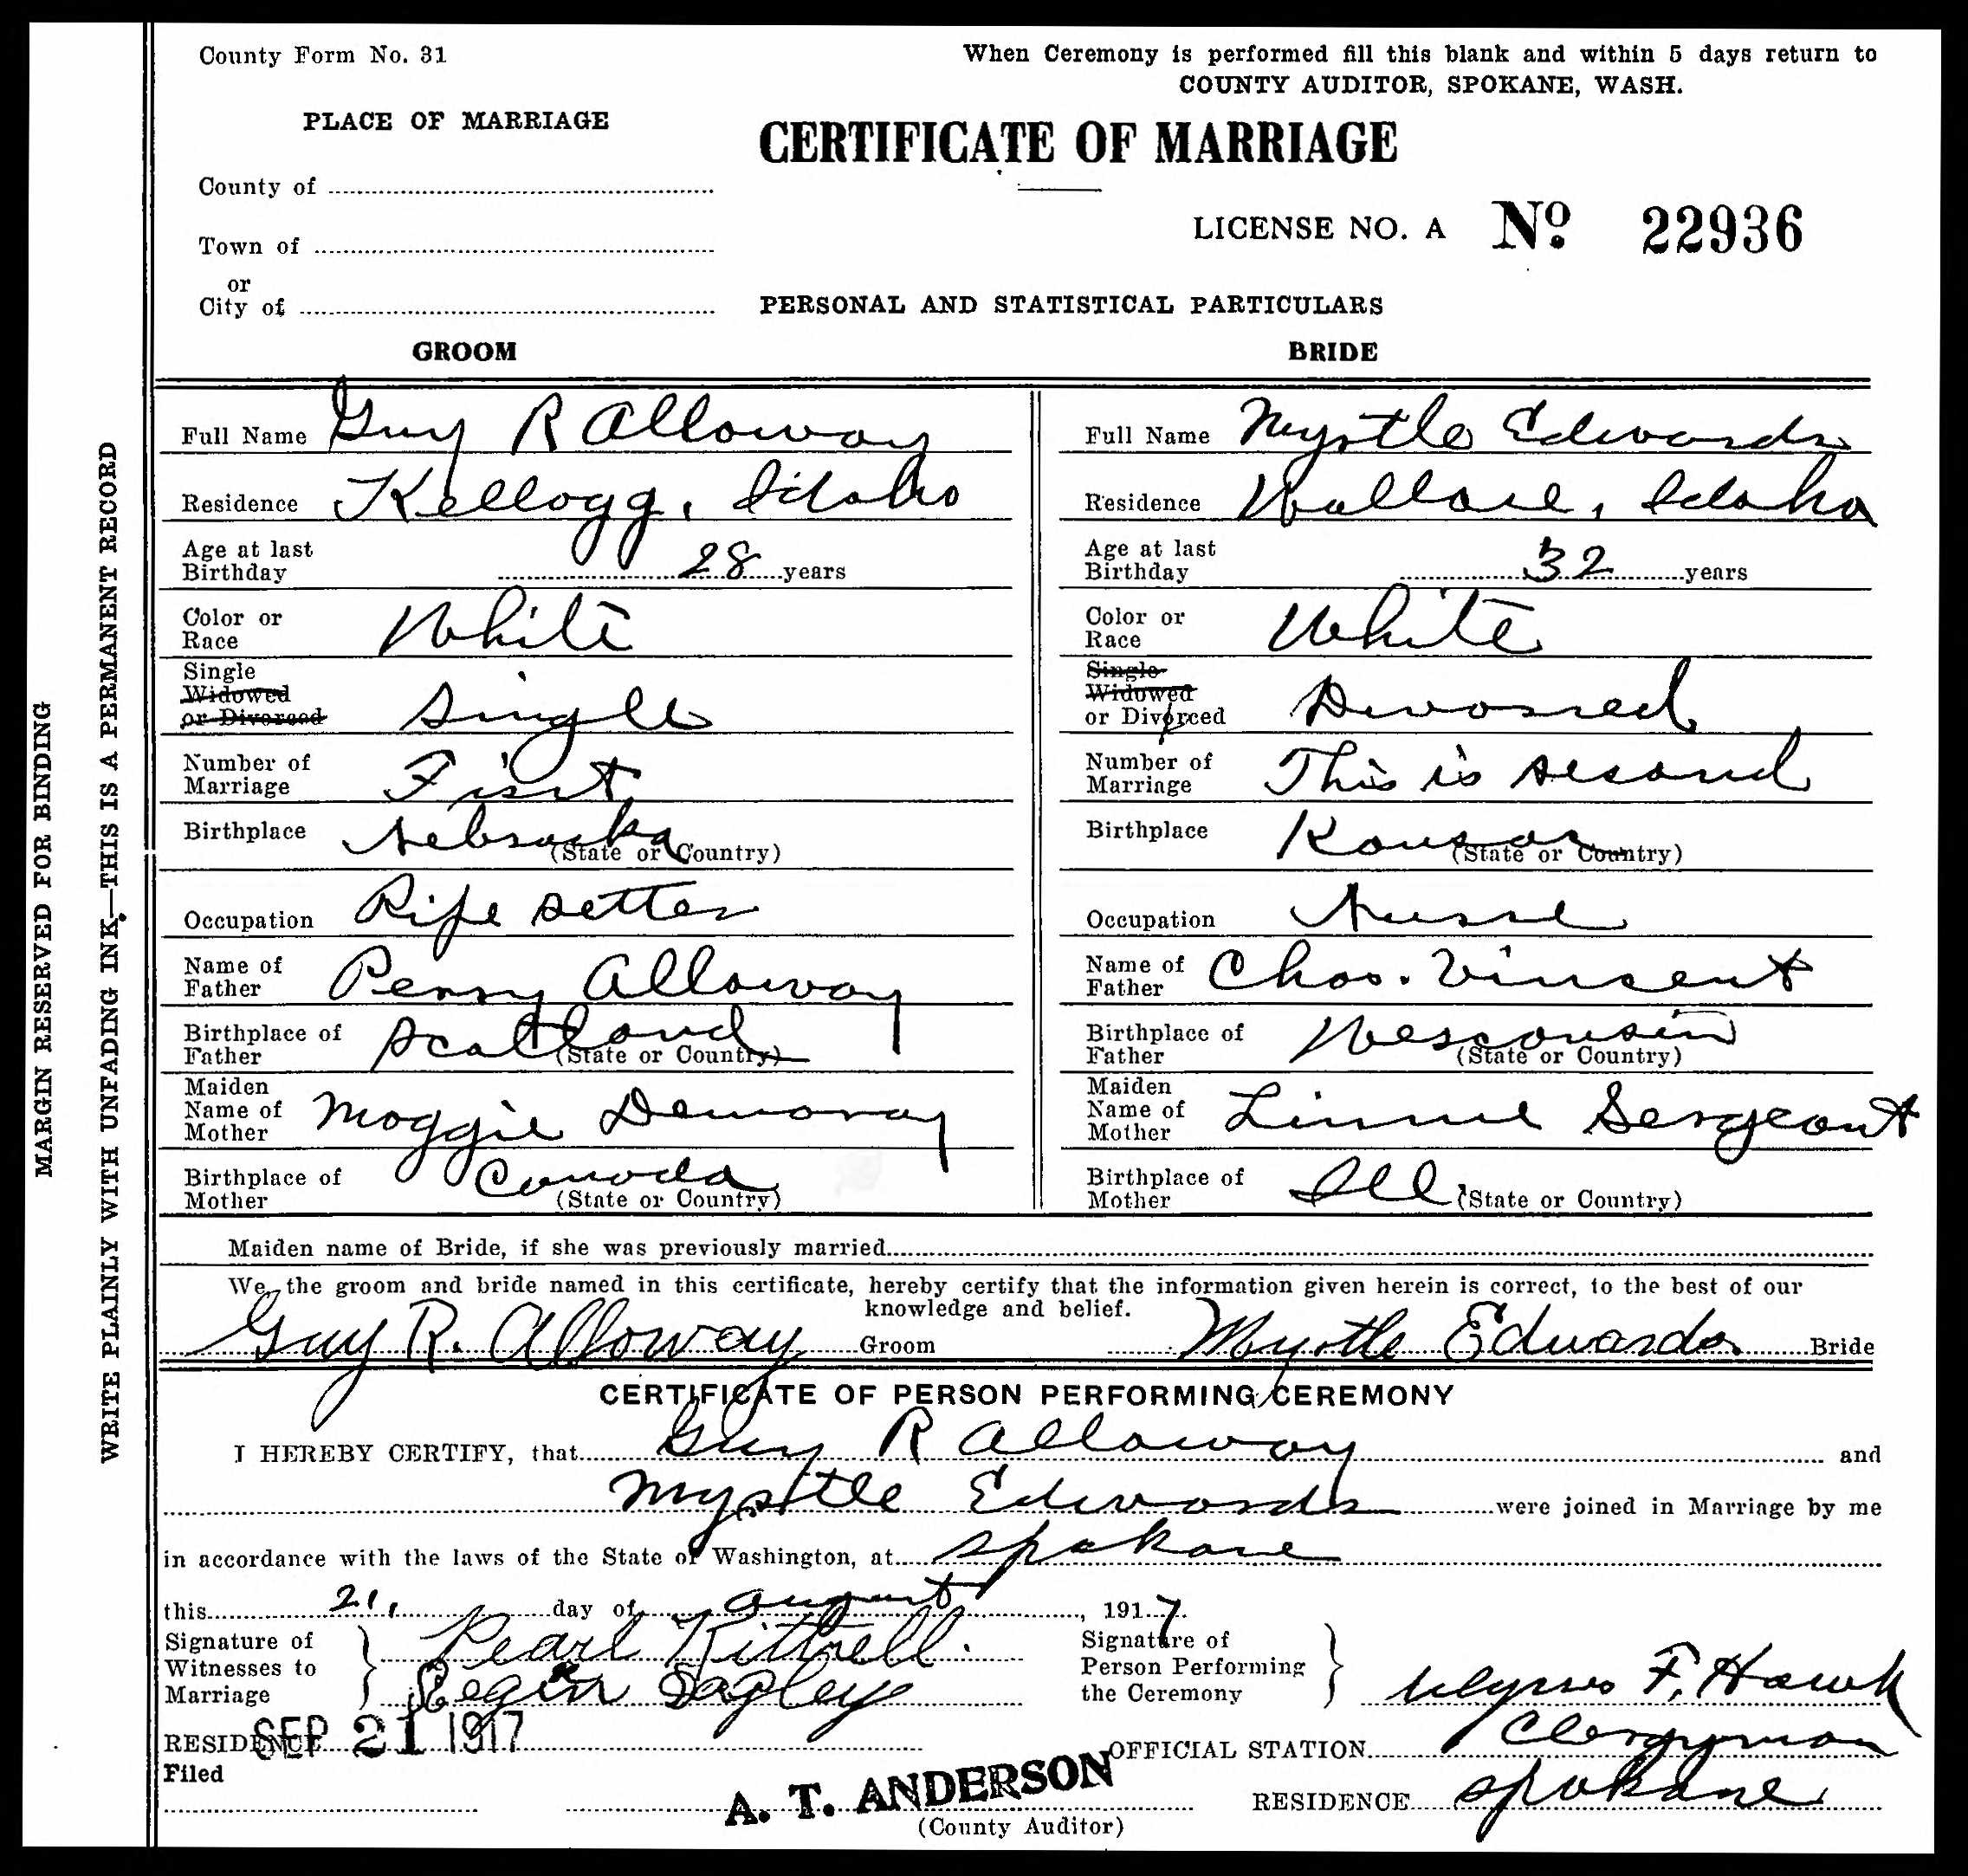 County Form No. 31
When Ceremony is performed fill this blank and within 5 days return to
COUNTY AUDITOR, SPOKANE, WASH.
PLACE OF MARRIAGE
CERTIFICATE OF MARRIAGE
County of
LICENSE NO. A No. 22936
Town of
or
City of
PERSONAL AND STATISTICAL PARTICULARS
GROOM BRIDE
Full Name Guy R Alloway Full Name Myrtle Edwards
Residence Kellogg, Idaho Residence Wallace, Idaho
Age at last Birthday 28 years Age at last Birthday 32 years
Color or Race White Color or Race White
Single Widowed or Divorced Single Single Widowed or Divorced Divorced
Number of Marriage First Number of Marriage This is second
Birthplace Nebraska (State or Country) Birthplace Kansas (State or Country)
Occupation Pipe setter Occupation Nurse
Name of Father Perry Alloway Name of Father Chas. Vincent
Birthplace of Father Scotland (State or Country) Birthplace of Father Wesconsin (State or Country)
Maiden Name of Mother Maggie Demoray Maiden Name of Mother Linnie Sergeant
Birthplace of Mother Canada (State or Country) Birthplace of Mother Ill. (State or Country)
Maiden name of Bride, if she was previously married
We, the groom and bride named in this certificate, hereby certify that the information given herein is correct, to the best of our
knowledge and belief.
Guy R. Alloway Groom Myrtle Edwards Bride
CERTIFICATE OF PERSON PERFORMING CEREMONY
I HEREBY CERTIFY, that Guy R Alloway and
Myrtle Edwards were joined in Marriage by me
in accordance with the laws of the State of Washington, at Spokane
this 21, day of August, 1917.
Signature of Witnesses to Marriage Pearl Kittrell.
Sagley
Signature of Person Performing the Ceremony Ulysses F. Hawk
RESIDENCE
SEP 21 1917
OFFICIAL STATION Clergyman
Filed
A. T. ANDERSON
(County Auditor)
RESIDENCE Spokane
MARGIN RESERVED FOR BINDING
WRITE PLAINLY WITH UNFADING INK.—THIS IS A PERMANENT RECORD